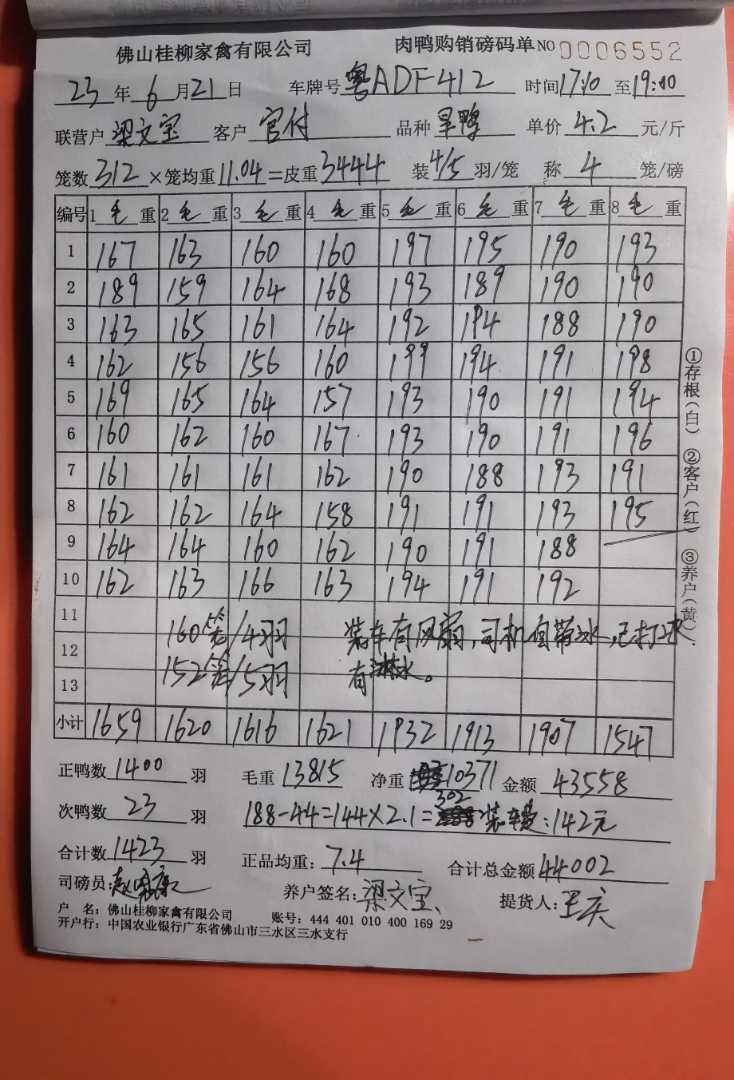 佛山桂柳家禽有限公司 肉鸭购销磅码单 NO 0006552
23 年 6 月 21 日 车牌号 粤ADF412 时间 17:10 至 19:10
联营户 梁文宝 客户 官付 品种 旱鸭 单价 4.2 元/斤
笼数 312 ×笼均重 11.04 =皮重 3444 装 4/5 羽/笼 称 4 笼/磅
编号 1 毛 重 2 毛 重 3 毛 重 4 毛 重 5 毛 重 6 毛 重 7 毛 重 8 毛 重
1 167 163 160 160 197 195 190 193
2 189 159 164 168 193 189 190 190
3 163 165 161 164 192 194 188 190
4 162 156 156 160 199 194 191 198
5 169 165 164 157 193 190 191 194
6 160 162 160 167 193 190 191 196
7 161 161 161 162 190 188 193 191
8 162 162 164 158 191 191 193 195
9 164 164 160 162 190 191 188
10 162 163 166 163 194 191 192
11 160笼/4羽 装车有风扇,司机自带冰,已打冰
12 152笼/5羽 有淋水。
13
小计 1659 1620 1616 1621 1932 1913 1907 1547
正鸭数 1400 羽 毛重 13815 净重 10371 金额 43558
次鸭数 23 羽 188-44=144×2.1=302 装车费:142元
合计数 1423 羽 正品均重: 7.4 合计总金额 44002
司磅员: 养户签名: 梁文宝 提货人: 王庆
户 名: 佛山桂柳家禽有限公司 账号: 444 401 010 400 169 29
开户行: 中国农业银行广东省佛山市三水区三水支行
①存根(白) ②客户(红) ③养户(黄)